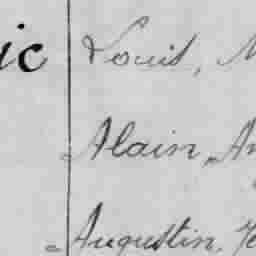 ic Louis,
Alain,
Augustin,